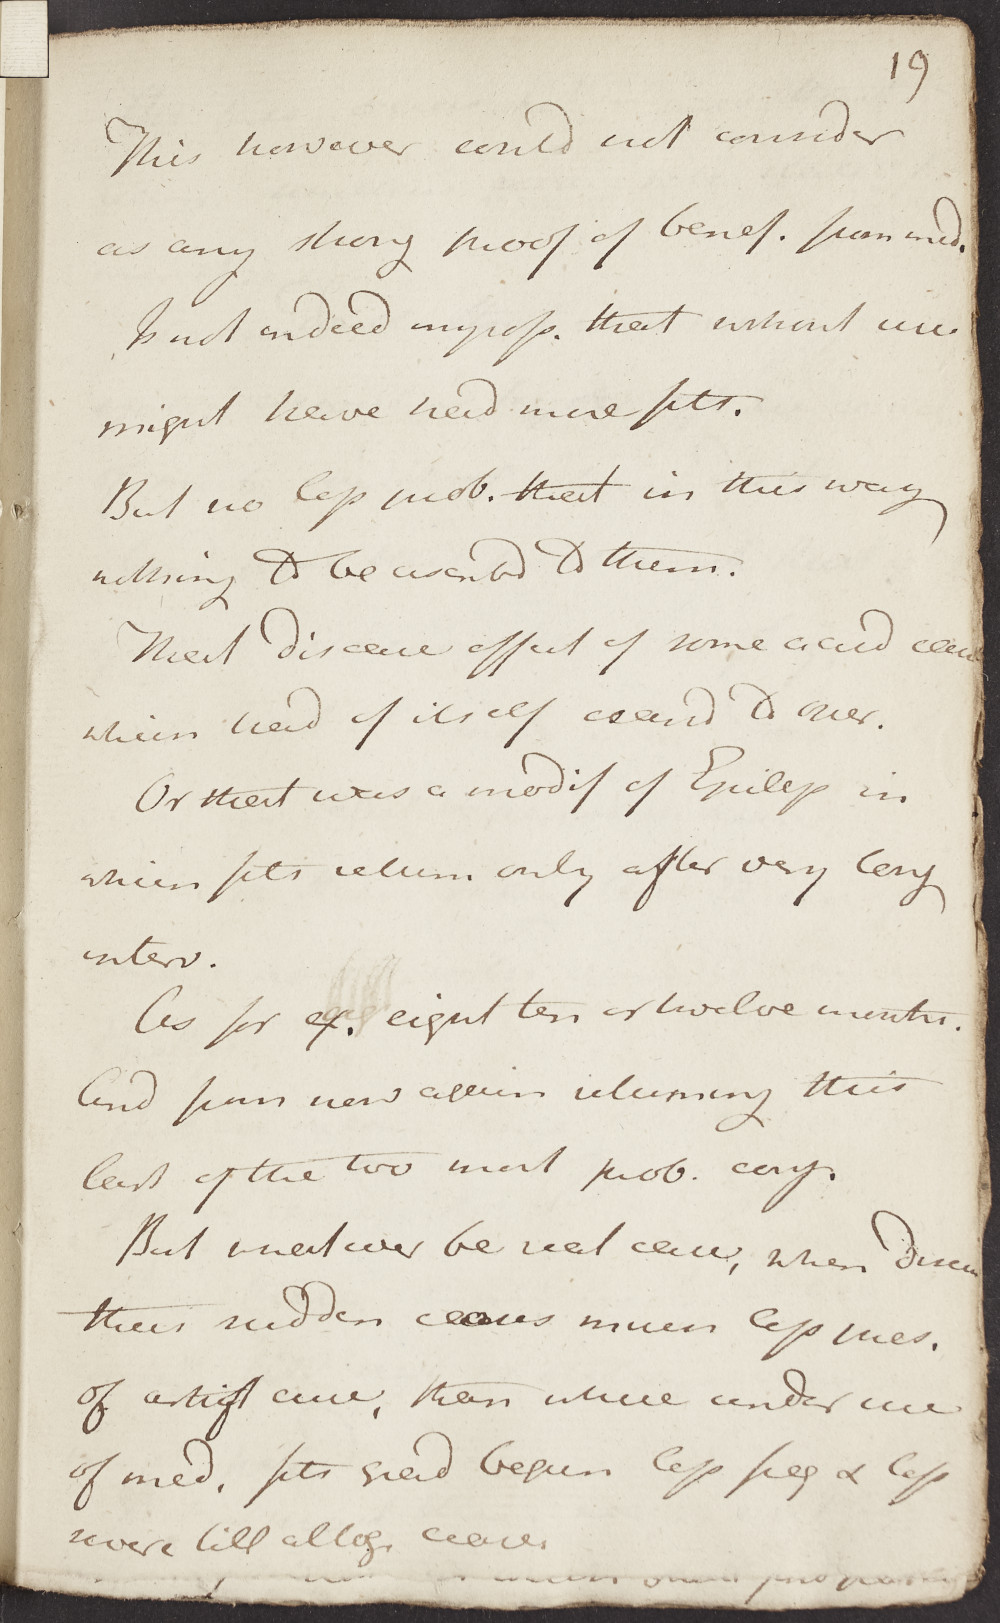 19
This however could not consider
as any strong proof of benef. from med.
Is not indeed imposs. that without use
might have had more fits.
But no less prob. that in this way
nothing to be ascribd to them.
That disease effect of some acCid caus
which had of itself ceased to oper.
Or that was a modif of Epilep in
which fits return only after very long
interv.
As for ex. eight ten or twelve months.
And from now again returning this
last of the two most prob. conj.
But whatever be real case, when diseas
thus sudden ceases much less pres.
of artifl cure, than where under use
of med. fits grad begun less freq & less
severe till altog. cease.